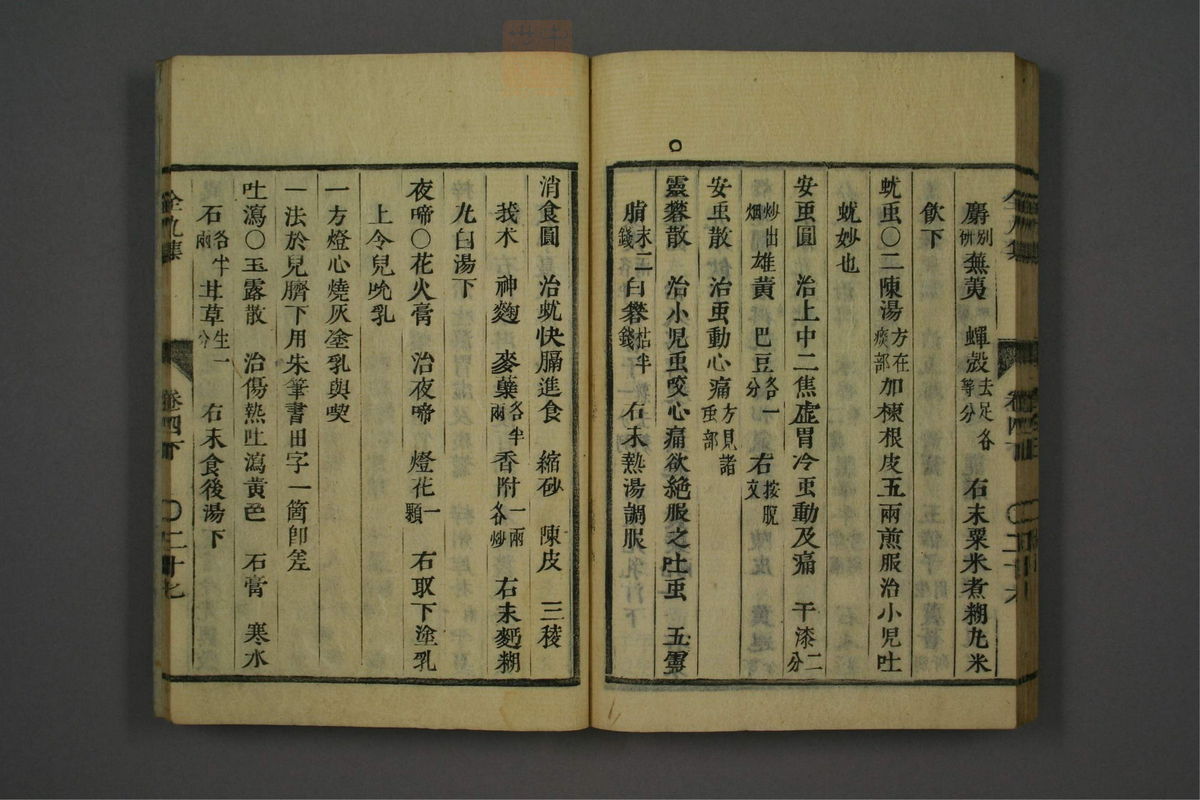 麝別研 蕪荑 蟬殼去足各等分 右末粟米煮糊丸米
飲下
蚘䖝〇二陳湯方在痰部加楝根皮五兩煎服治小兒吐
蚘妙也
安䖝圓 治上中二焦虛胃冷䖝動及痛 干漆二分
炒出烟 雄黃 巴豆各一分 右
安䖝散 治䖝動心痛方見諸䖝部
靈礬散 治小兒䖝咬心痛欲絶服之吐䖝 五靈
脂末二錢 白礬枯半錢 右末熱湯調服
全九集 卷四下 〇二十六
消食圓 治蚘快膈進食 縮砂 陳皮 三稜
莪朮 神麹 麥蘖各半兩 香附一兩各炒 右末麪糊
丸白湯下
夜啼〇花火膏 治夜啼 燈花一顆 右取下塗乳
上令兒吮乳
一方燈心燒灰塗乳與喫
一法於兒臍下用朱筆書田字一箇卽差
吐瀉〇玉露散 治傷熱吐瀉黃色 石膏 寒水
石各半兩 甘草生一分 右末食後湯下
全九集 卷四下 〇二十七